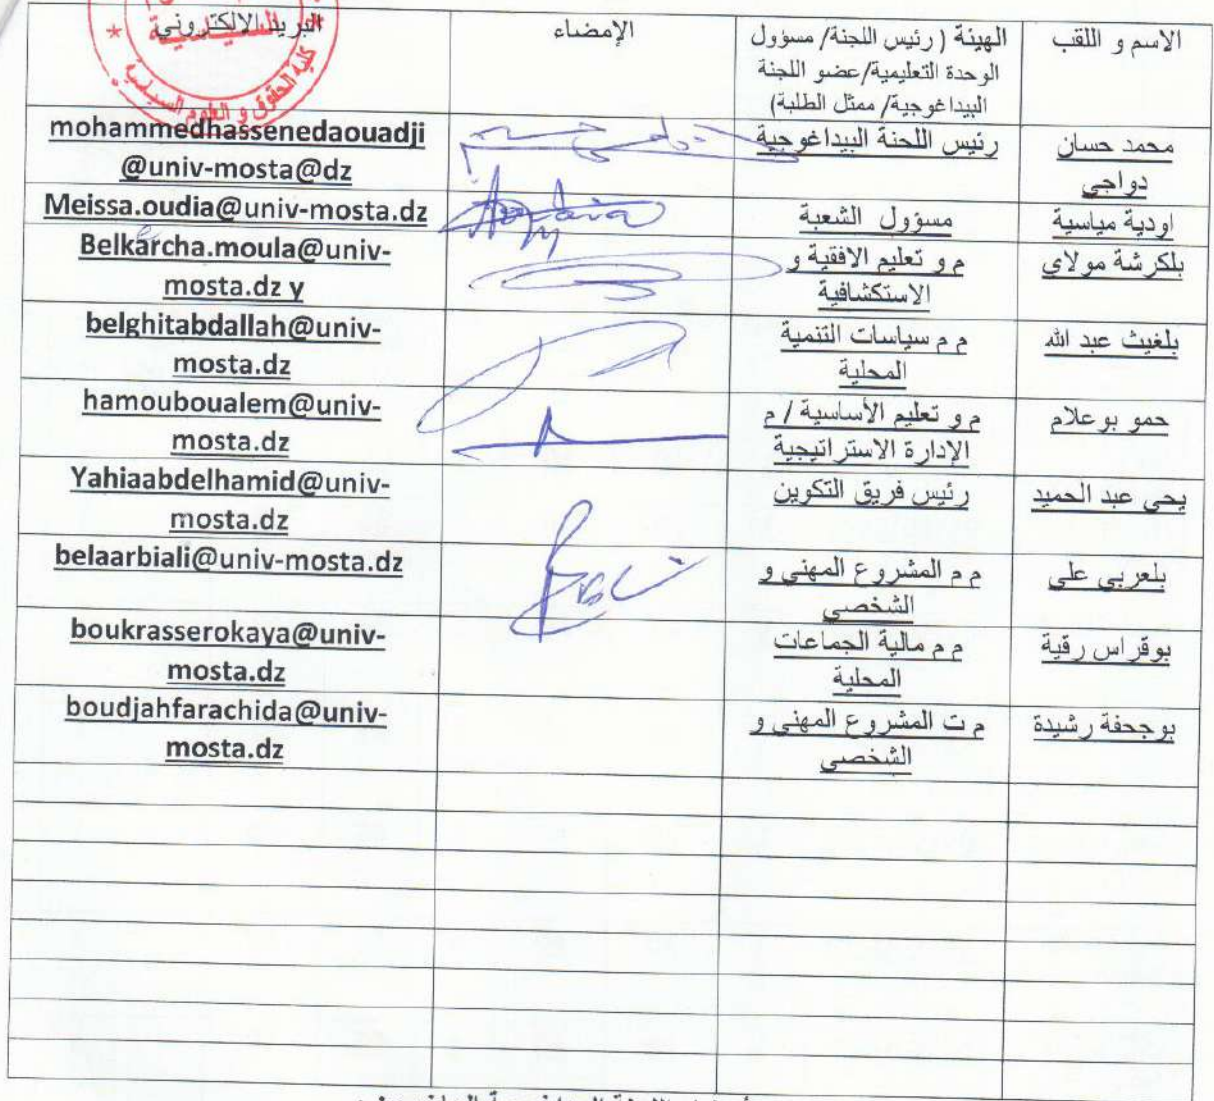 الاسم و اللقب
الهيئة ( رئيس اللجنة/ مسؤول
الوحدة التعليمية/عضو اللجنة
البيداغوجية/ ممثل الطلبة)
الإمضاء
البريد الالكتروني
السياسية
كلية الحقوق و العلوم السياسية
محمد حسان
دواجي
رئيس اللجنة البيداغوجية
mohammedhassenedaouadji
@univ-mosta@dz
اودية مياسية
مسؤول الشعبة
Meissa.oudia@univ-mosta.dz
بلكرشة مولاي
م و تعليم الافقية و
الاستكشافية
Belkarcha.moula@univ-
mosta.dz y
بلغيث عبد الله
م م سياسات التنمية
المحلية
belghitabdallah@univ-
mosta.dz
حمو بوعلام
م و تعليم الأساسية / م
الإدارة الاستراتيجية
hamouboualem@univ-
mosta.dz
يحي عبد الحميد
رئيس فريق التكوين
Yahiaabdelhamid@univ-
mosta.dz
بلعربي علي
م م المشروع المهني و
الشخصي
belaarbiali@univ-mosta.dz
بوقراس رقية
م م مالية الجماعات
المحلية
boukrasserokaya@univ-
mosta.dz
بوجحفة رشيدة
م ت المشروع المهني و
الشخصي
boudjahfarachida@univ-
mosta.dz